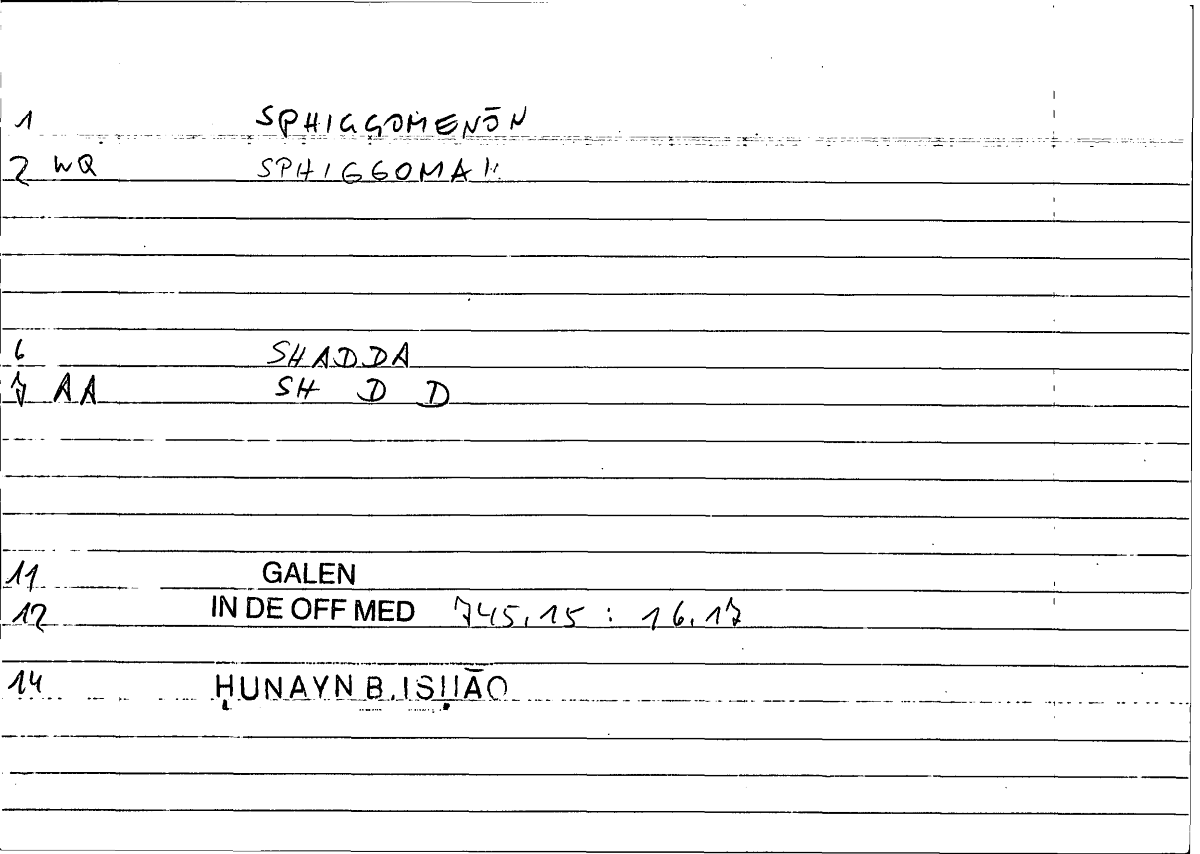 1 SPHIGGOMENŌN
2 WQ SPHIGGOMAI
6 SHADDA
7 AA SH D D
11 GALEN
12 IN DE OFF MED 745,15 : 16.17
14 ḤUNAYN B. ISḤĀQ